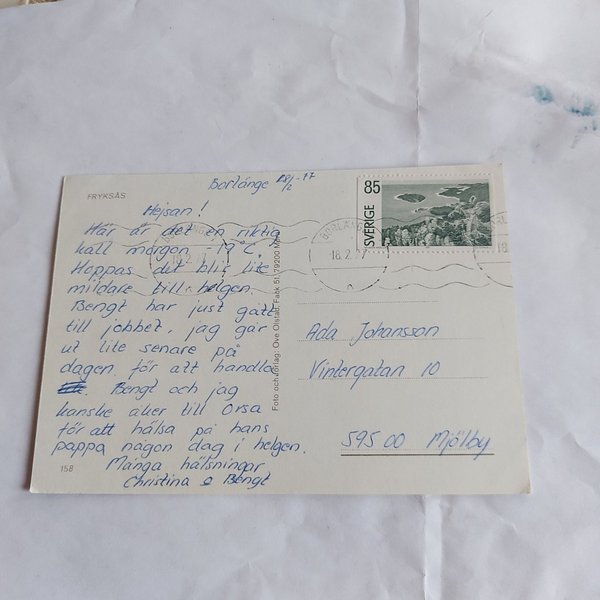 FRYKSÅS
Borlänge 18/2-77
Hejsan!
Här är det en riktig
kall morgon -19°C.
Hoppas det blir lite
mildare till helgen.
Bengt har just gått
till jobbet, jag går
ut lite senare på
dagen för att handla
Bengt och jag
kanske åker till Orsa
för att hälsa på hans
pappa någon dag i helgen.
Många hälsningar
Christina o Bengt
158
Foto och förlag: Ove Olstad, Fack 51, 79200 Mora
85
SVERIGE
BORLÄNGE
18.2.77
Ada Johansson
Vintergatan 10
595 00 Mjölby